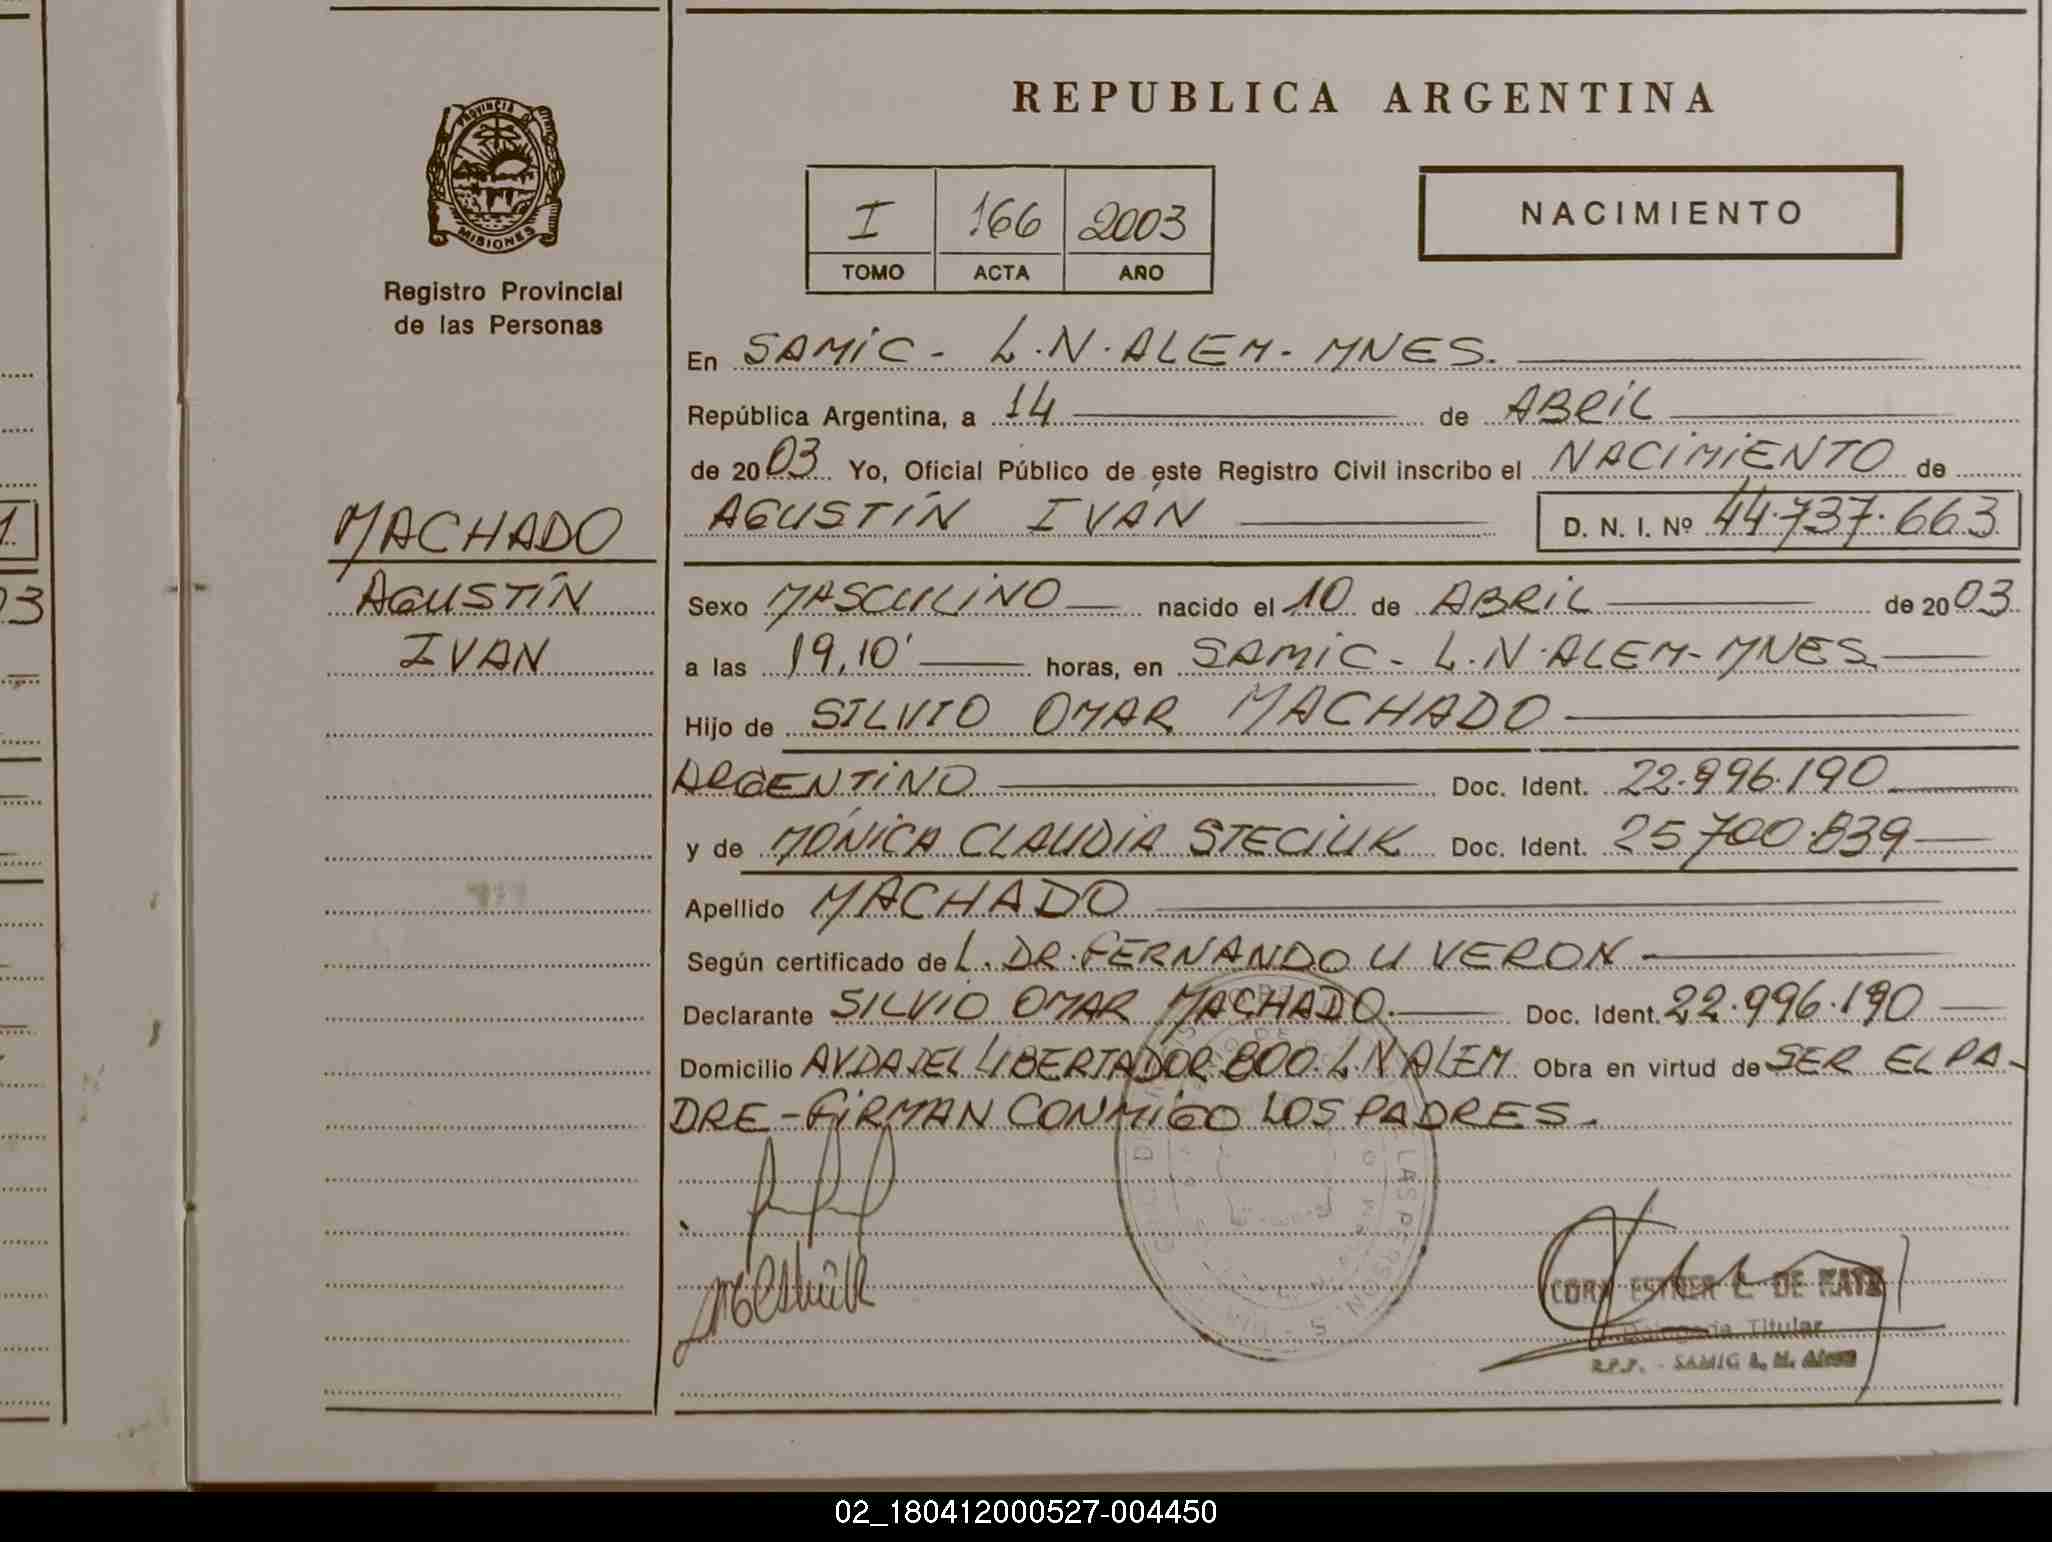 REPUBLICA ARGENTINA
PROVINCIA DE
MISIONES
Registro Provincial
de las Personas
I 166 2003
TOMO ACTA AÑO
NACIMIENTO
En SAMIC - L.N. ALEM - MNES.
República Argentina, a 14 de ABRIL
de 2003 Yo, Oficial Público de este Registro Civil inscribo el NACIMIENTO de
AGUSTÍN IVÁN D. N. I. Nº 44.737.663
MACHADO
AGUSTÍN
IVÁN
Sexo MASCULINO nacido el 10 de ABRIL de 2003
a las 19,10' horas, en SAMIC - L.N. ALEM - MNES.
Hijo de SILVIO OMAR MACHADO
ARGENTINO Doc. Ident. 22.996.190
y de MÓNICA CLAUDIA STECIUK Doc. Ident. 25.700.839
Apellido MACHADO
Según certificado de L. DR. FERNANDO U VERON
Declarante SILVIO OMAR MACHADO. Doc. Ident. 22.996.190
Domicilio AVDA DEL LIBERTADOR 800. L.N ALEM Obra en virtud de SER EL PA-
DRE - FIRMAN CONMIGO LOS PADRES.
LAS PERSONAS
ESTHER C. DE KATZ
Delegada Titular
R.P.P. - SAMIC L. N. Alem
1
03
02_180412000527-004450